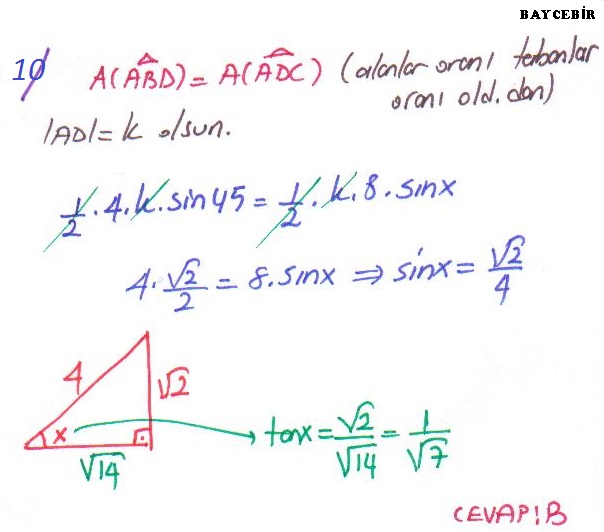 BAYCEBİR
10) A(ABD) = A(ADC) (alanlar oranı tabanlar
oranı old. dan)
|AD| = k olsun.
1/2 · 4 · k · sin45 = 1/2 · k · 8 · sinx
4 · √2/2 = 8 · sinx ⇒ sinx = √2/4
4
√2
x
√14
tanx = √2/√14 = 1/√7
CEVAP: B